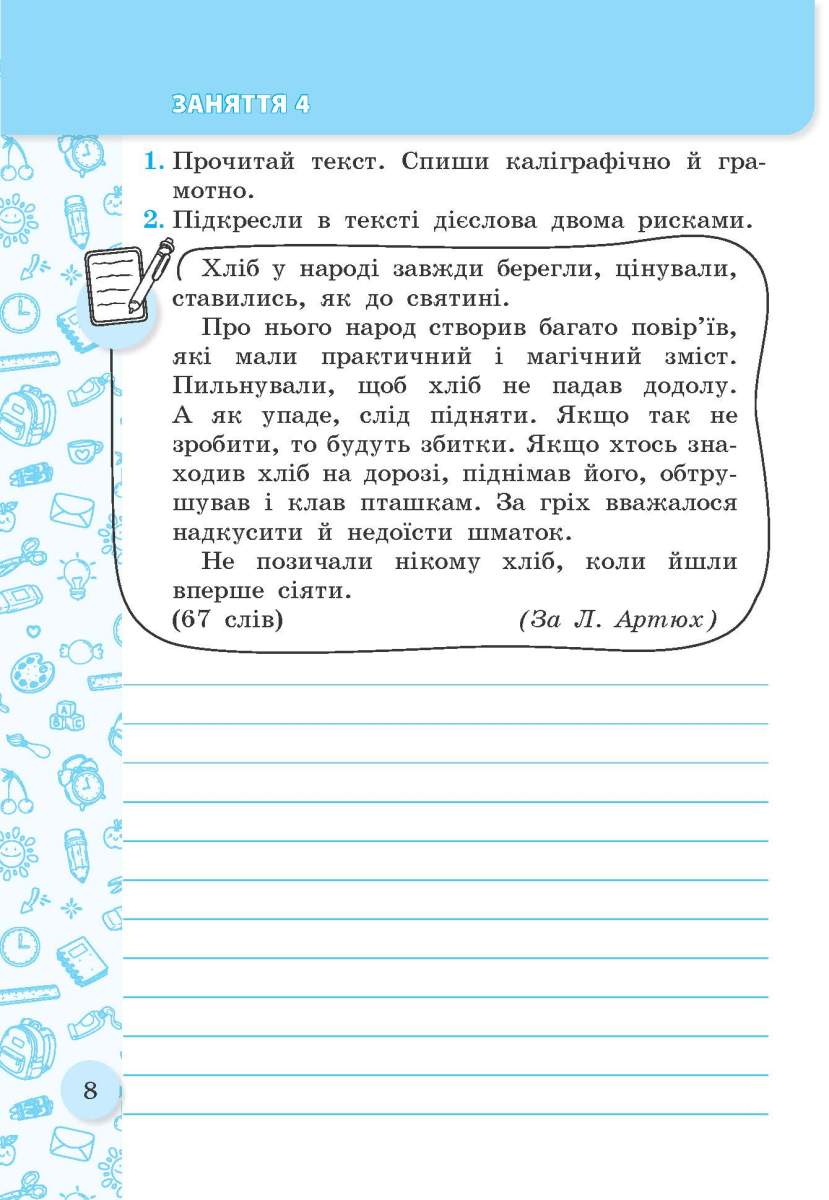 ЗАНЯТТЯ 4
1. Прочитай текст. Спиши каліграфічно й гра-
мотно.
2. Підкресли в тексті дієслова двома рисками.
Хліб у народі завжди берегли, цінували,
ставились, як до святині.
Про нього народ створив багато повір’їв,
які мали практичний і магічний зміст.
Пильнували, щоб хліб не падав додолу.
А як упаде, слід підняти. Якщо так не
зробити, то будуть збитки. Якщо хтось зна-
ходив хліб на дорозі, піднімав його, обтру-
шував і клав пташкам. За гріх вважалося
надкусити й недоїсти шматок.
Не позичали нікому хліб, коли йшли
вперше сіяти.
(67 слів) (За Л. Артюх)
8